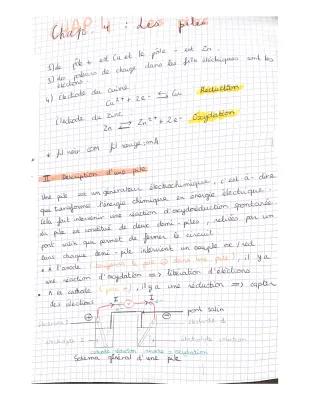 Chap 4 : Les piles
1) Le pôle + est Cu et le pôle - est Zn.
3) des porteurs de charge dans les fils électriques sont les
électrons
4) Electrode du cuivre
Cu²⁺ + 2e- ⇆ Cu Reduction
Electrode du zinc
Zn ⇄ Zn²⁺ + 2e- Oxydation
* fil noir COM fil rouge: mA
II Description d'une pile
Une pile est un générateur électrochimique, c'est-à-dire
que transforme l'énergie chimique en énergie électrique.
Cela fait intervenir une réaction d'oxydoréduction spontanée.
La pile est constituée de deux demi-piles, reliées par un
pont salin qui permet de fermer le circuit
Dans chaque demi-pile intervient un couple ox / red
• A l'anode (toujours la pôle ⊖ dans une pile), il y a
une réaction d'oxydation => libération d'électrons
• A la cathode (pôle +), il y a une réduction => capter
des électrons
I I
⊕ ⊖ pont salin
électrode
électrode
cathode réduction anode = oxydation
Schéma général d'une pile